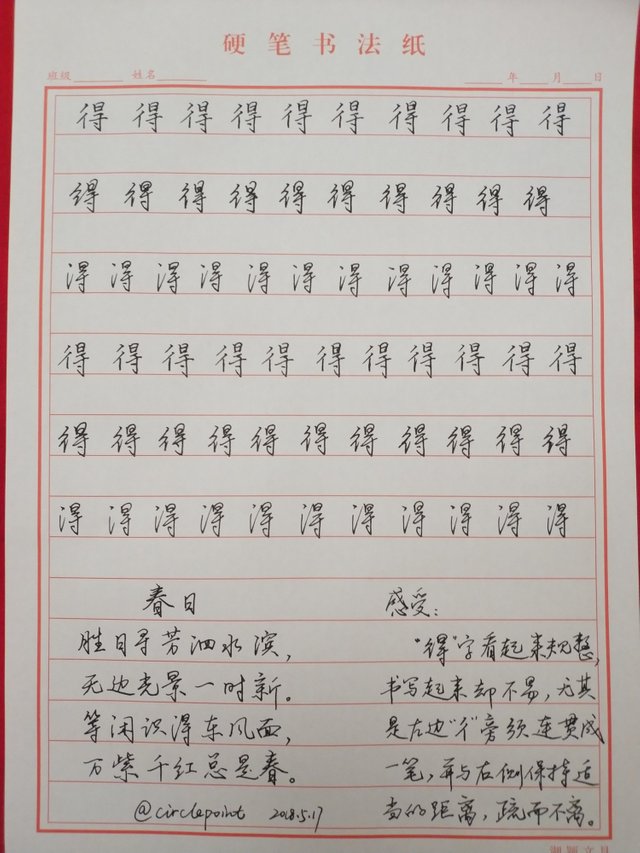 硬笔书法纸
班级 姓名 年 月 日
得 得 得 得 得 得 得 得 得 得
得 得 得 得 得 得 得 得 得 得
得 得 得 得 得 得 得 得 得 得 得 得
得 得 得 得 得 得 得 得 得 得 得
得 得 得 得 得 得 得 得 得 得 得
得 得 得 得 得 得 得 得 得 得 得
春日
胜日寻芳泗水滨，
无边光景一时新。
等闲识得东风面，
万紫千红总是春。
@circlepoint 2018.5.17
感受：
“得”字看起来规整，
书写起来却不易，尤其
是左边“彳”旁须连贯成
一笔，并与右侧保持适
当的距离，疏而不离。